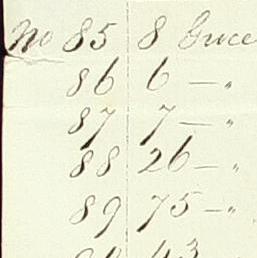 No 85 8 Grice
86 6 — "
87 7 — "
88 26 — "
89 75 — "
90 43